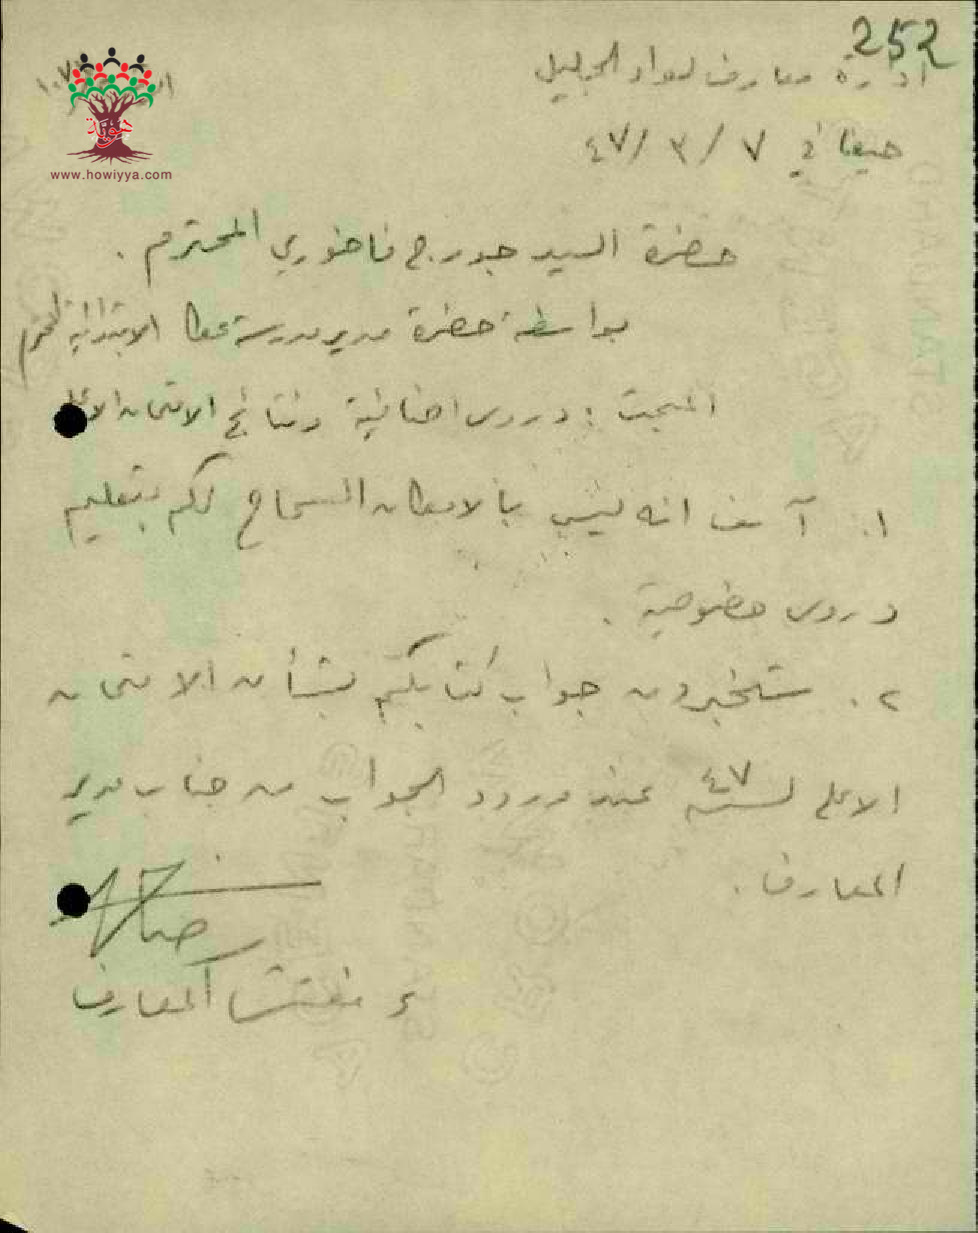 252
ادارة معارف لواء الجليل
حيفا في ٧ / ٣ / ٤٧
هوية
www.howiyya.com
حضرة السيد جورج فاخوري المحترم .
بواسطة حضرة مدير مدرسة عكا الابتدائية المحترم
المبحث : دروس اضافية ونتائج الامتحان الاعلى
١. آسف انه ليس بالامكان السماح لكم بتعليم
دروس خصوصية .
٢. ستخبرون جواب كتابكم بشأن الامتحان
الاعلى لسنة ٤٧ عند ورود الجواب من جناب مدير
المعارف .
ع مفتش المعارف